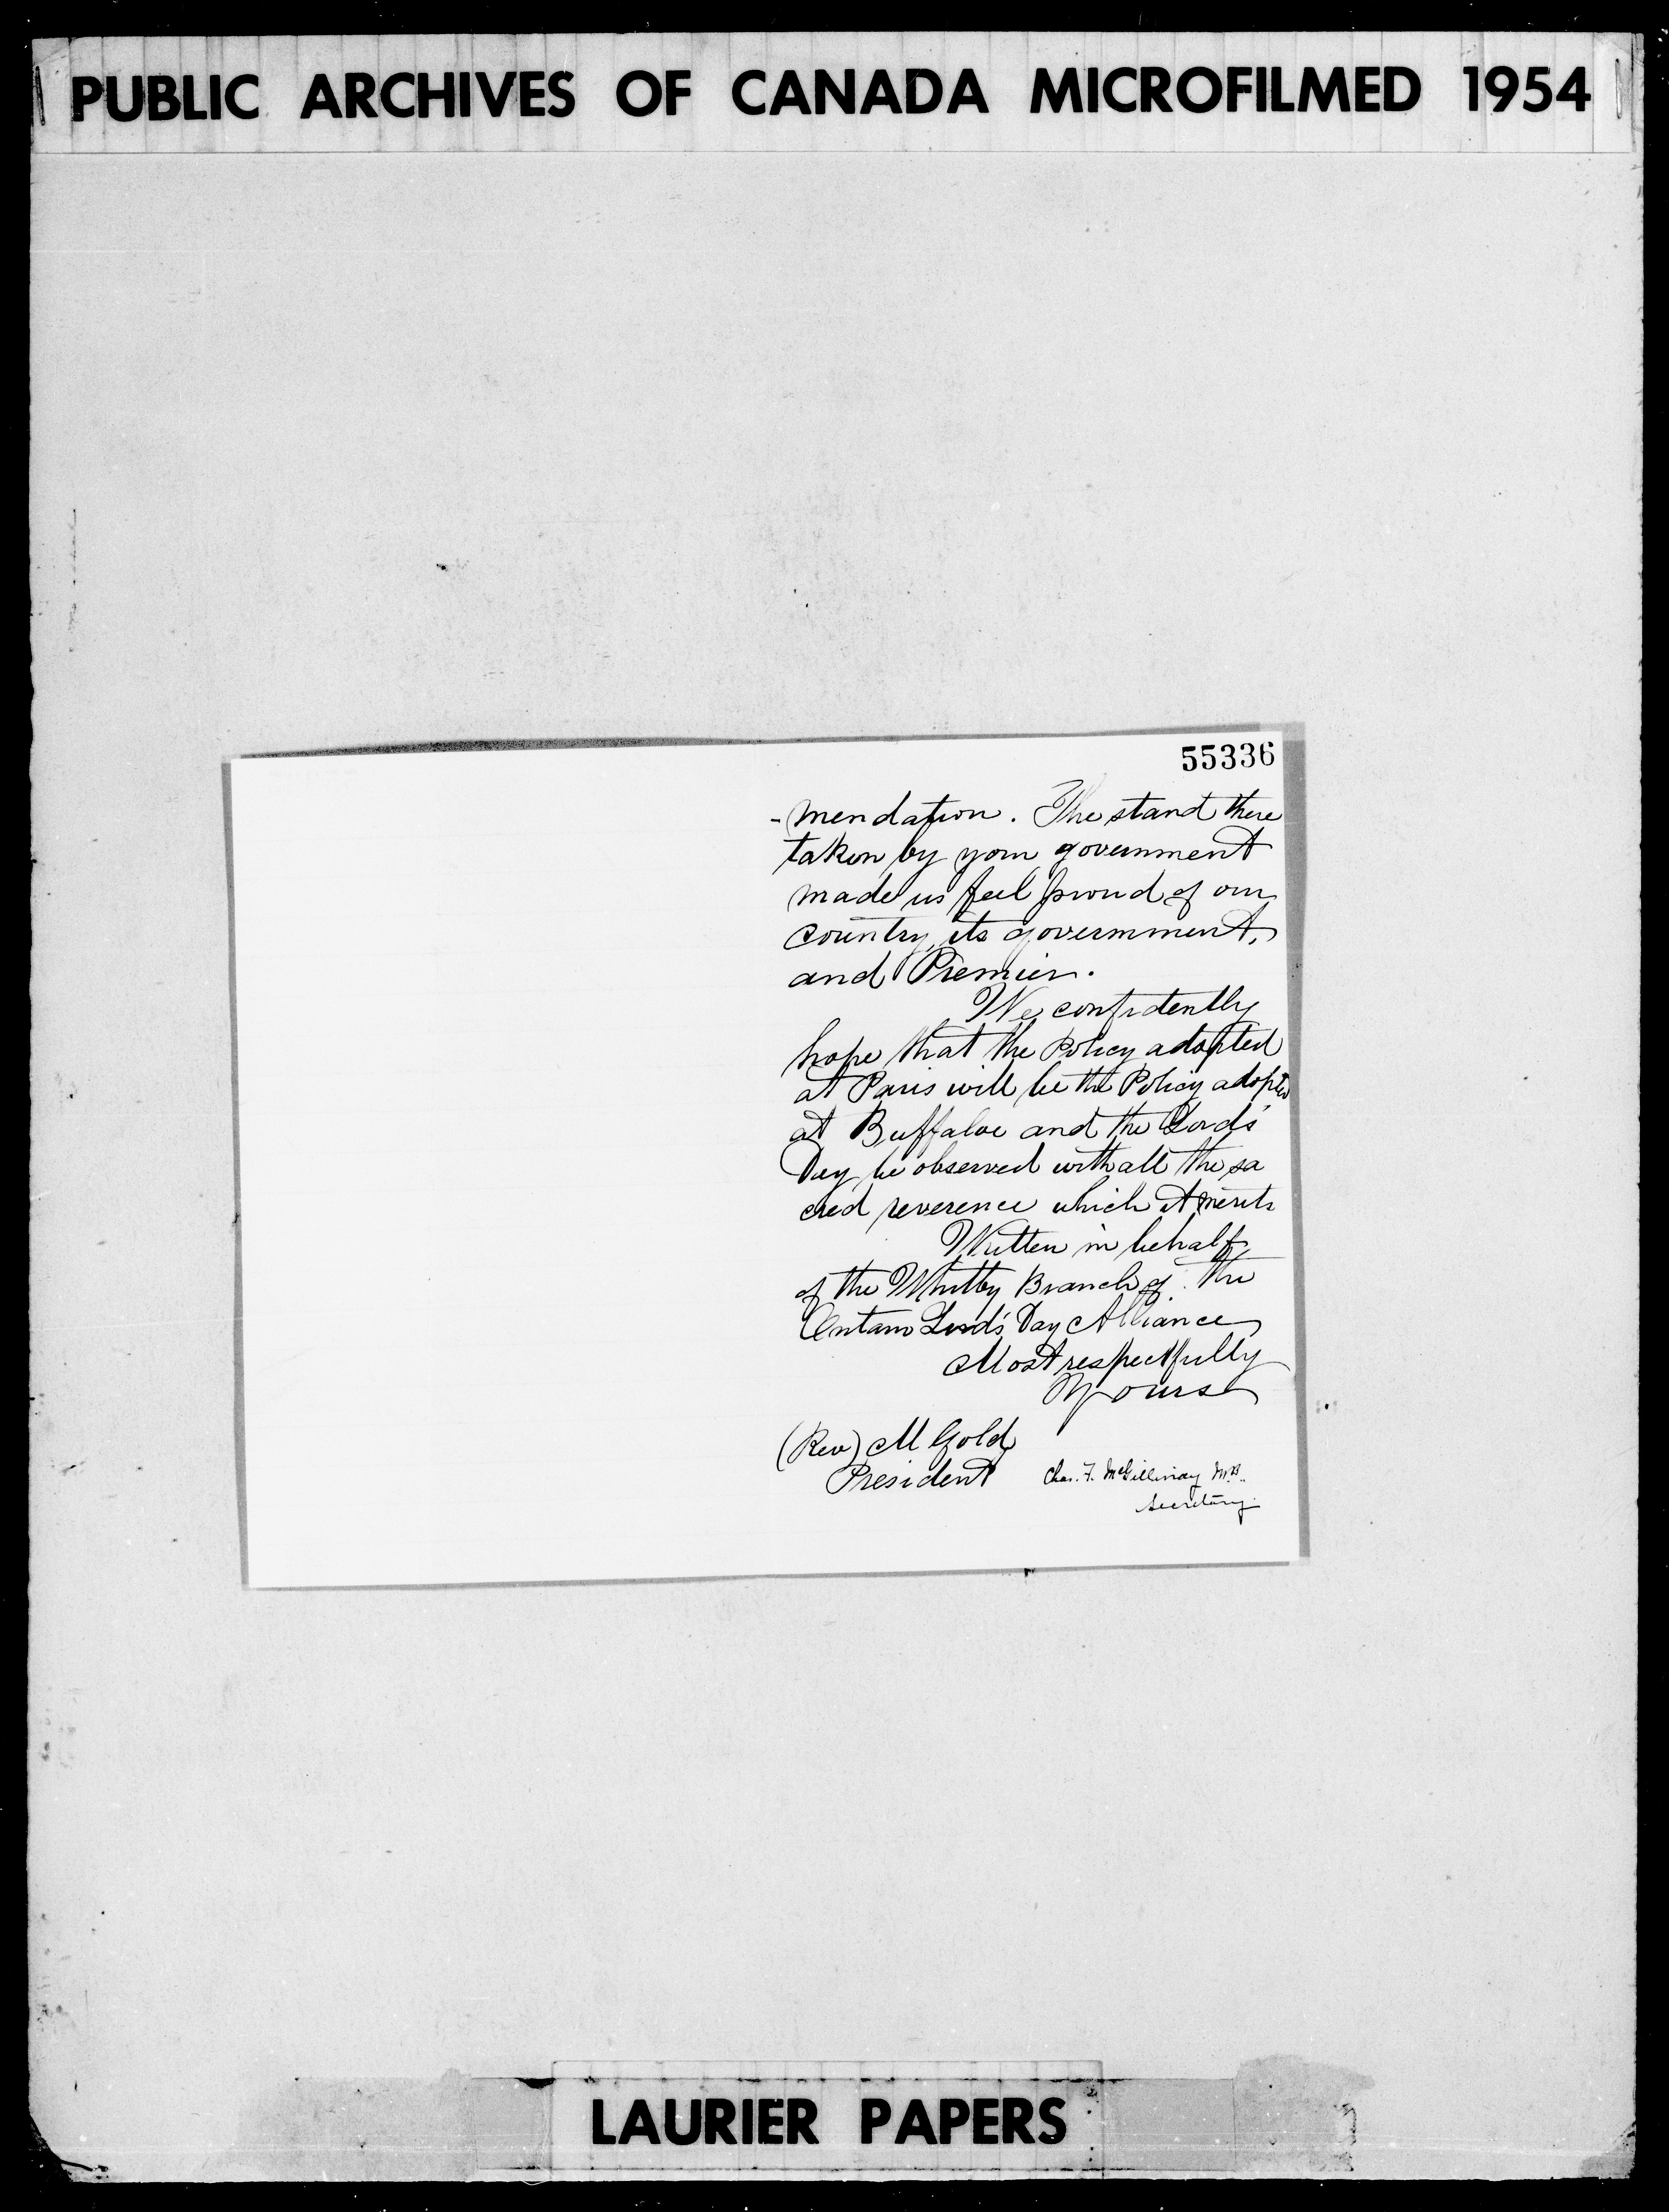 PUBLIC ARCHIVES OF CANADA MICROFILMED 1954
55336
-mendation. The stand there
taken by your government
made us feel proud of our
country, its government,
and Premier.
We confidently
hope that the Policy adopted
at Paris will be the Policy adopted
at Buffaloe and the Lord's
Day be observed with all the sa
cred reverence which it merits
Written in behalf
of the Whitby Branch of the
Ontario Lord's Day Alliance
Most respectfully
Yours
(Rev) M Gold
President
Chas. F. McGillivray M.B.
Secretary
LAURIER PAPERS